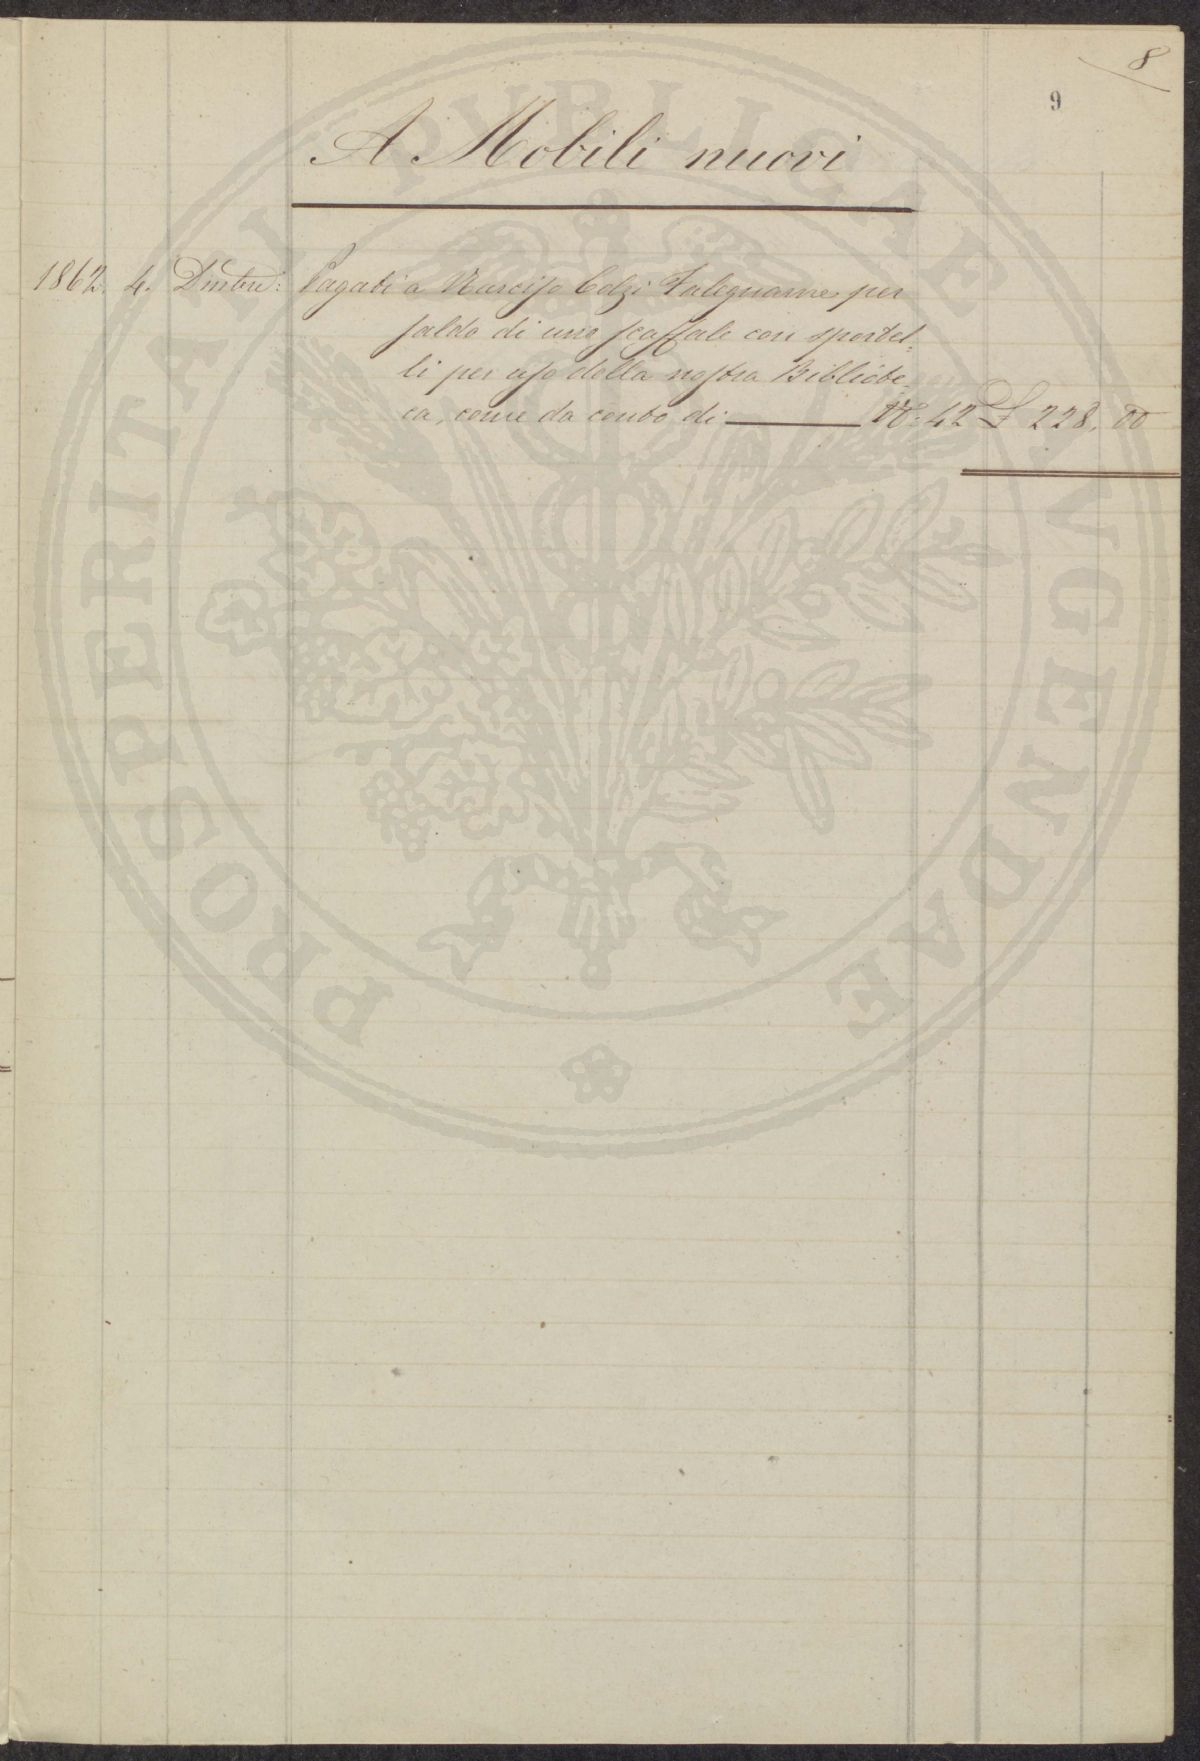 8
9
A Mobili nuovi
1862. 4. Dmbre: Pagati a Narciso Colzi Falegname per
saldo di uno scaffale con sportel=
li per uso della nostra Bibliote=
ca, come da conto di ——— No: 42 £ 228. 00
PROSPERITATI PVBLICAE AVGENDAE